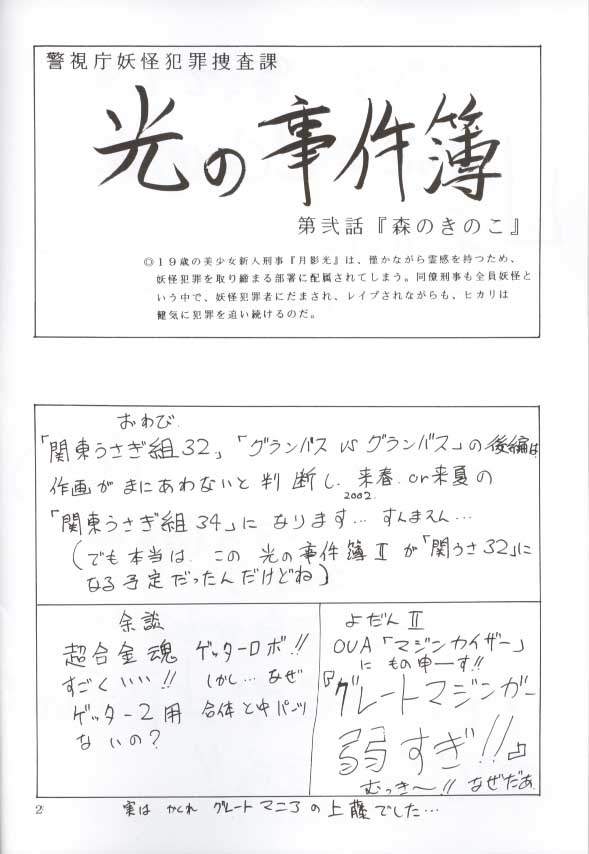 警視庁妖怪犯罪捜査課
光の事件簿
第弐話『森のきのこ』
◎19歳の美少女新人刑事『月影光』は、僅かながら霊感を持つため、
妖怪犯罪を取り締まる部署に配属されてしまう。同僚刑事も全員妖怪と
いう中で、妖怪犯罪者にだまされ、レイプされながらも、ヒカリは
健気に犯罪を追い続けるのだ。
おわび
「関東うさぎ組32」「グランバス VS グランバス」の後編は
作画がまにあわないと判断し、来春.or来夏の
2002
「関東うさぎ組34」になります…すんまえん…
(でも本当は、この光の事件簿Ⅱが「関うさ32」に
なる予定だったんだけどね)
余談
超合金魂 ゲッターロボ!!
すごくいい!! しかし…なぜ
ゲッター2用 合体と中パーツ
ないの?
よだんⅡ
OVA「マジンカイザー」
にもの申ーす!!
『グレートマジンガー
弱すぎ!!』
むっき〜!! なぜだあ
2
実は かくれ グレートマニアの上藤でした…